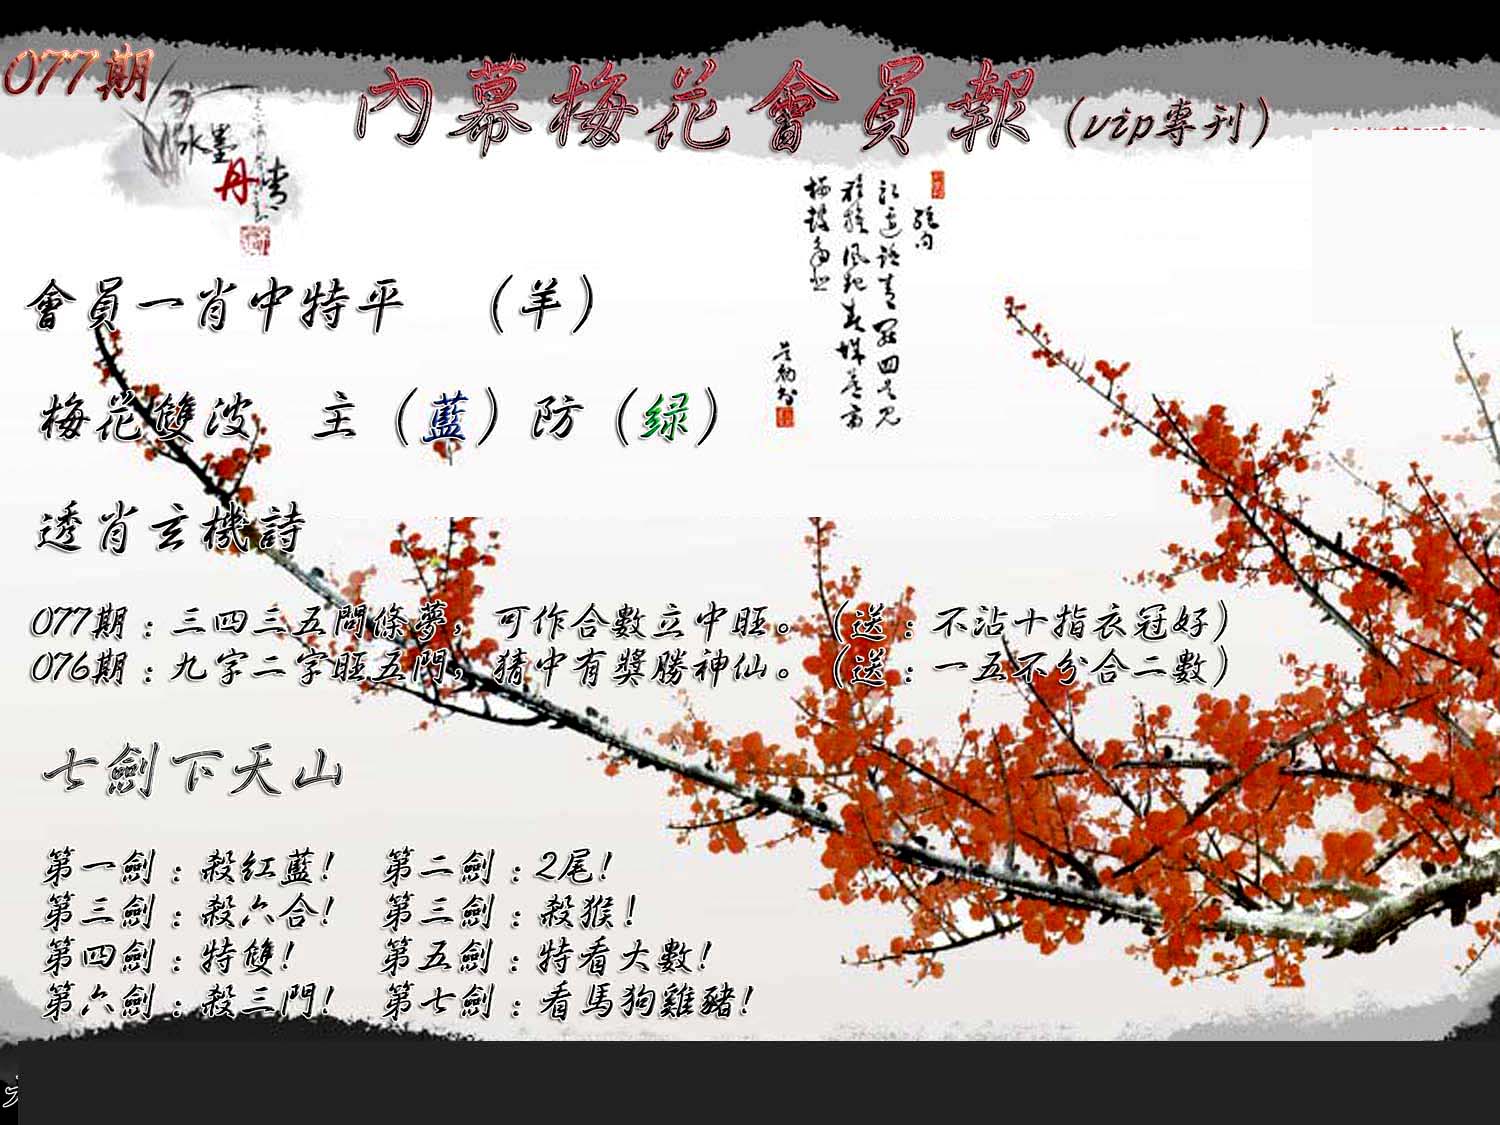 077期
內幕梅花會員報(vip專刊)
水墨
丹青
絕句
會員一肖中特平 (羊)
梅花雙波 主(藍)防(绿)
透肖玄機詩
077期:三四三五問條夢,可作合數立中旺。(送:不沾十指衣冠好)
076期:九字二字旺五門,猜中有獎勝神仙。(送:一五不分合二數)
七劍下天山
第一劍:殺红藍! 第二劍:2尾!
第三劍:殺六合! 第三劍:殺猴!
第四劍:特雙! 第五劍:特看大數!
第六劍:殺三門! 第七劍:看馬狗雞豬!